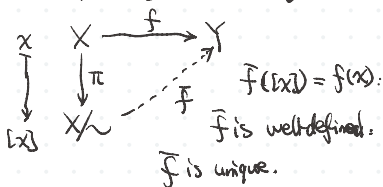 f
x X Y
π f̄
f̄([x]) = f(x):
[x] X/~
f̄ is well-defined:
f̄ is unique.